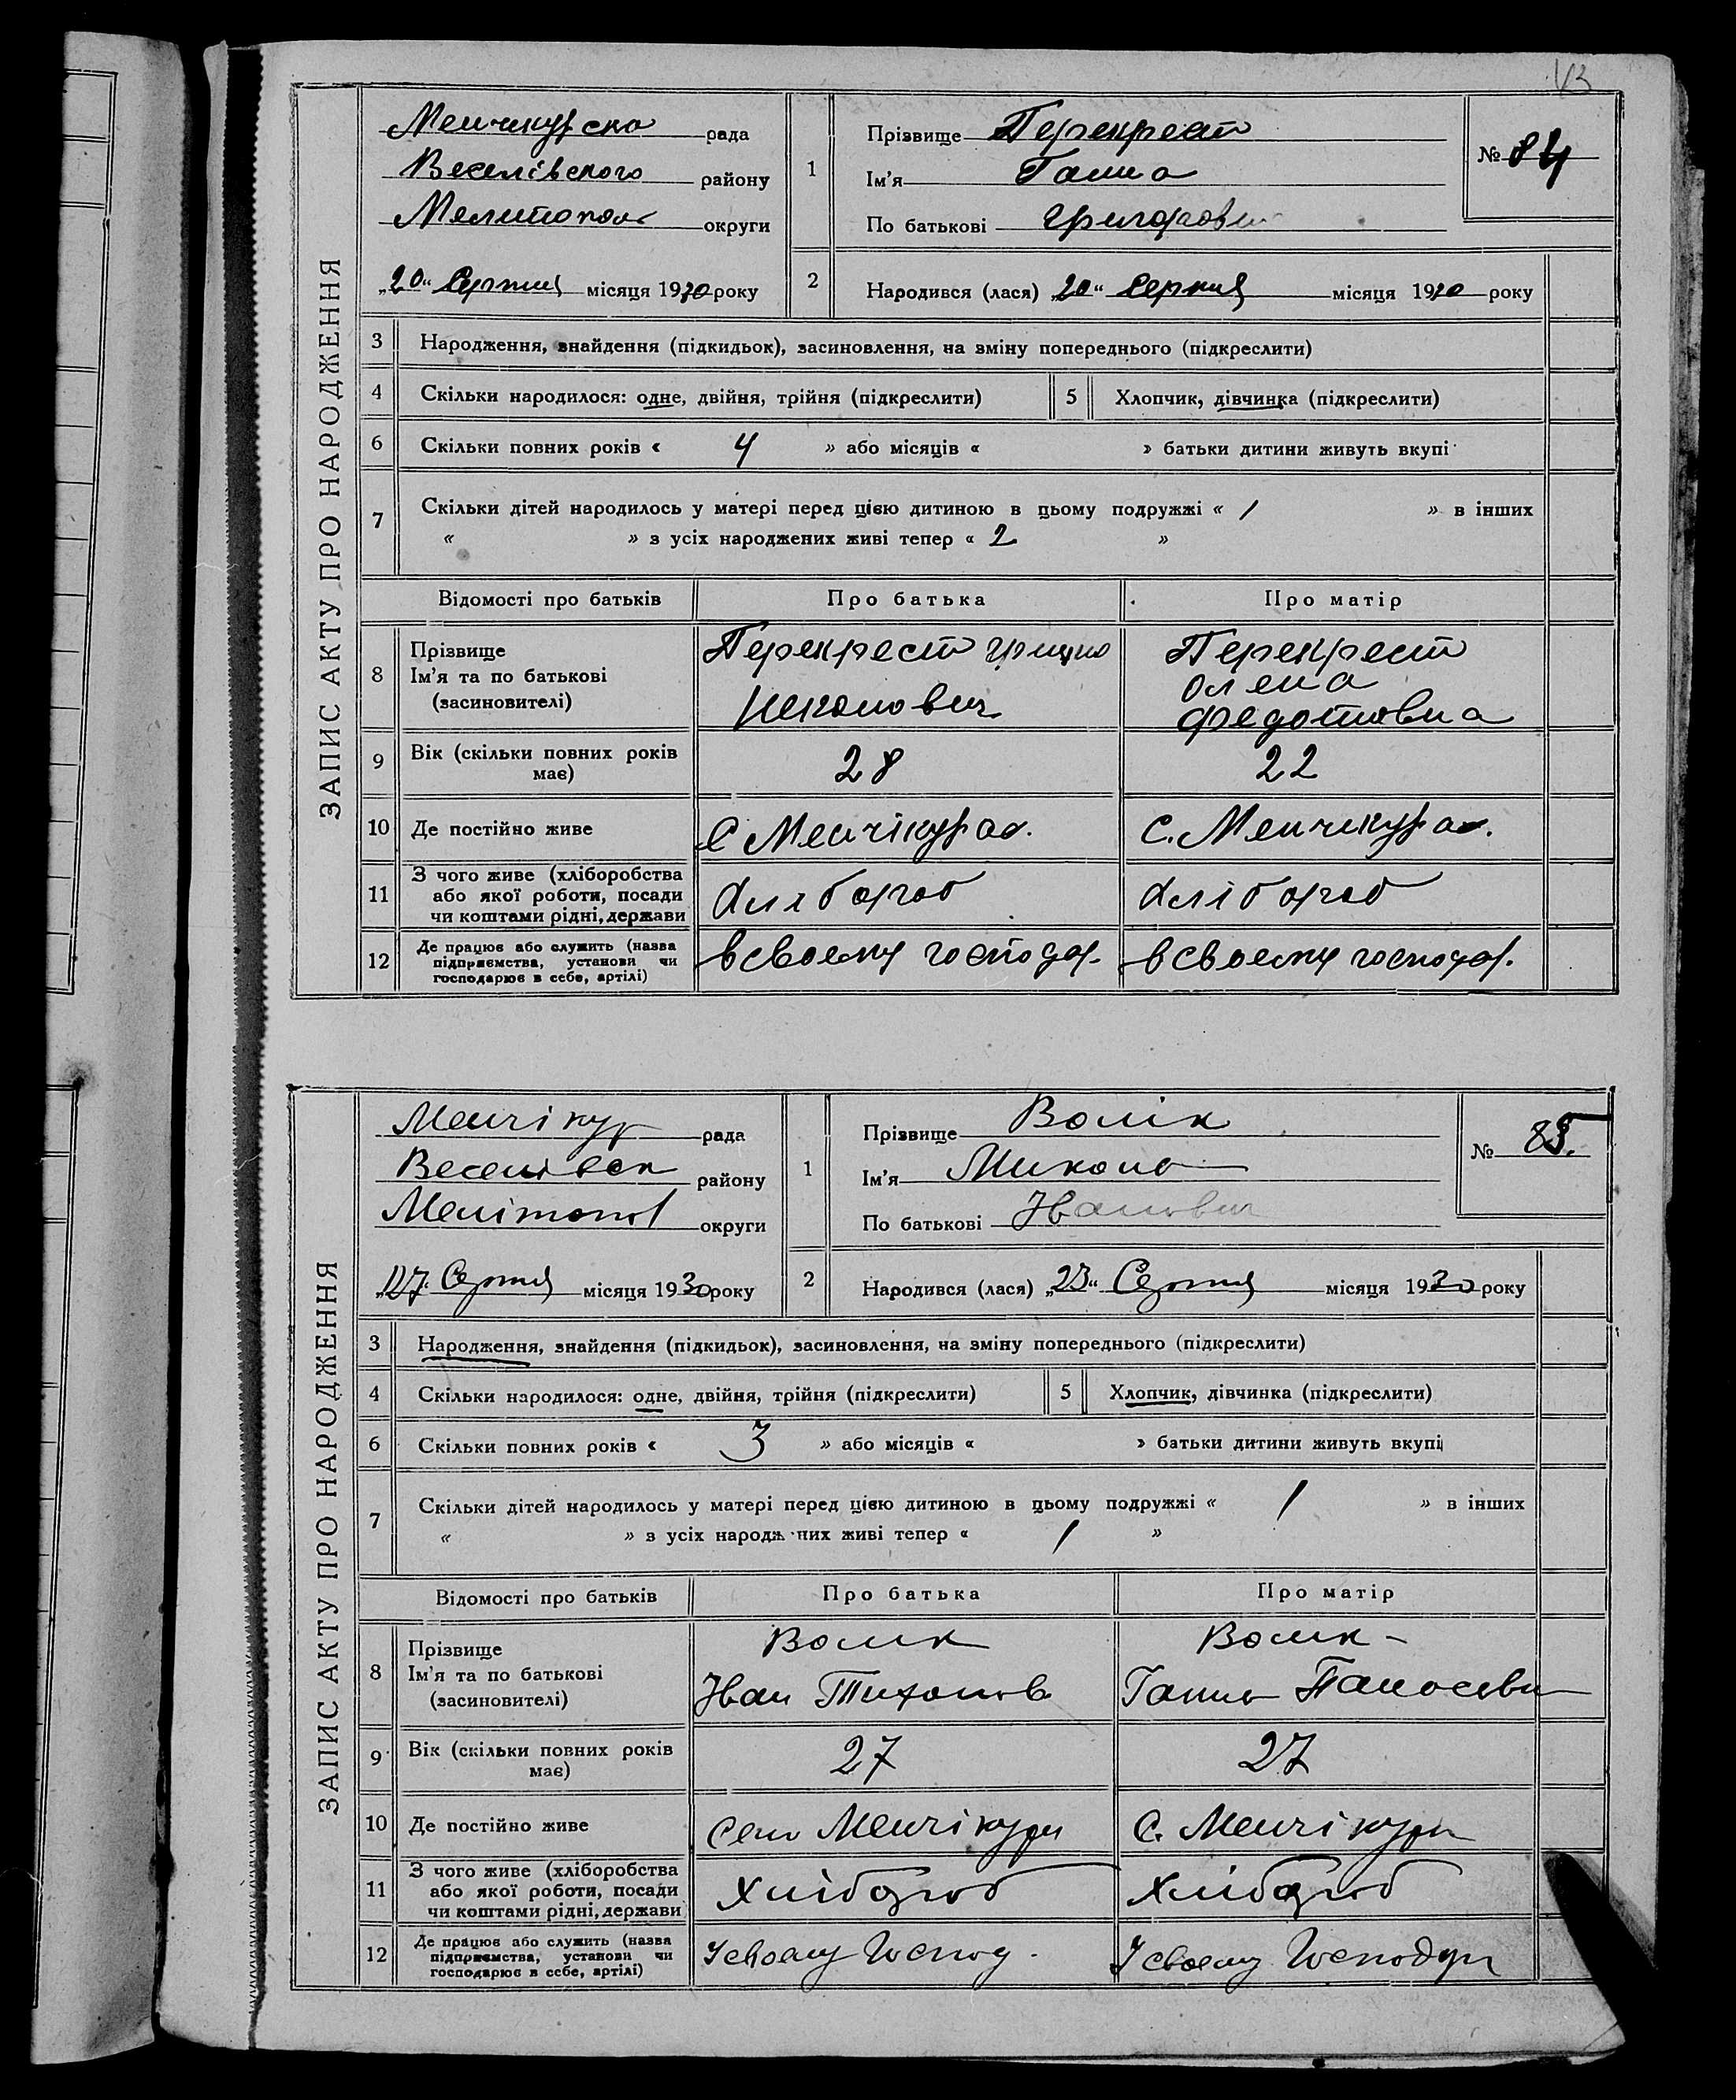 ЗАПИС АКТУ ПРО НАРОДЖЕННЯ
Менчикурска рада
Веселівского району
Мелитопол округи
„20“ Серпня місяця 1930 року
1
Прізвище Перекрест
Ім'я Ганна
По батькові Григоровн
№ 84
2
Народився (лася) „20“ Серпня місяця 1930 року
3 Народження, знайдення (підкидьок), засиновлення, на зміну попереднього (підкреслити)
4 Скільки народилося: одне, двійня, трійня (підкреслити) 5 Хлопчик, дівчинка (підкреслити)
6 Скільки повних років « 4 » або місяців « » батьки дитини живуть вкупі
7 Скільки дітей народилось у матері перед цією дитиною в цьому подружжі « 1 » в інших
« » з усіх народжених живі тепер « 2 »
Відомості про батьків Про батька Про матір
8 Прізвище
Ім'я та по батькові
(засновителі)
Перекрест Грицко
Перекрест
Олена
Федотовна
9 Вік (скільки повних років
має)
28 22
10 Де постійно живе с Менчікурах. с. Менчикурах.
11 З чого живе (хліборобства
або якої роботи, посади
чи коштами рідні, держави
Хлібороб Хлібороб
12 Де працює або служить (назва
підприємства, установи чи
господарює в себе, артілі)
в своєму господар. в своєму господар.
ЗАПИС АКТУ ПРО НАРОДЖЕННЯ
Менчікур рада
Веселівск району
Мелітопол округи
„27“ Серпня місяця 1930 року
1
Прізвище Волік
Ім'я Микола
По батькові Іванович
№ 85.
2
Народився (лася) „23“ Серпня місяця 1930 року
3 Народження, знайдення (підкидьок), засиновлення, на зміну попереднього (підкреслити)
4 Скільки народилося: одне, двійня, трійня (підкреслити) 5 Хлопчик, дівчинка (підкреслити)
6 Скільки повних років « 3 » або місяців « » батьки дитини живуть вкупі
7 Скільки дітей народилось у матері перед цією дитиною в цьому подружжі « 1 » в інших
« » з усіх народжених живі тепер « 1 »
Відомості про батьків Про батька Про матір
8 Прізвище
Ім'я та по батькові
(засиновителі)
Волик
Іван Тихонов
Волик
Ганна Панасовн
9 Вік (скільки повних років
має)
27 27
10 Де постійно живе село Менчікури с. Менчікури
11 З чого живе (хліборобства
або якої роботи, посади
чи коштами рідні, держави
Хлібороб Хлібороб
12 Де працює або служить (назва
підприємства, установи чи
господарює в себе, артілі)
У своєму Господ. У своєму Господар